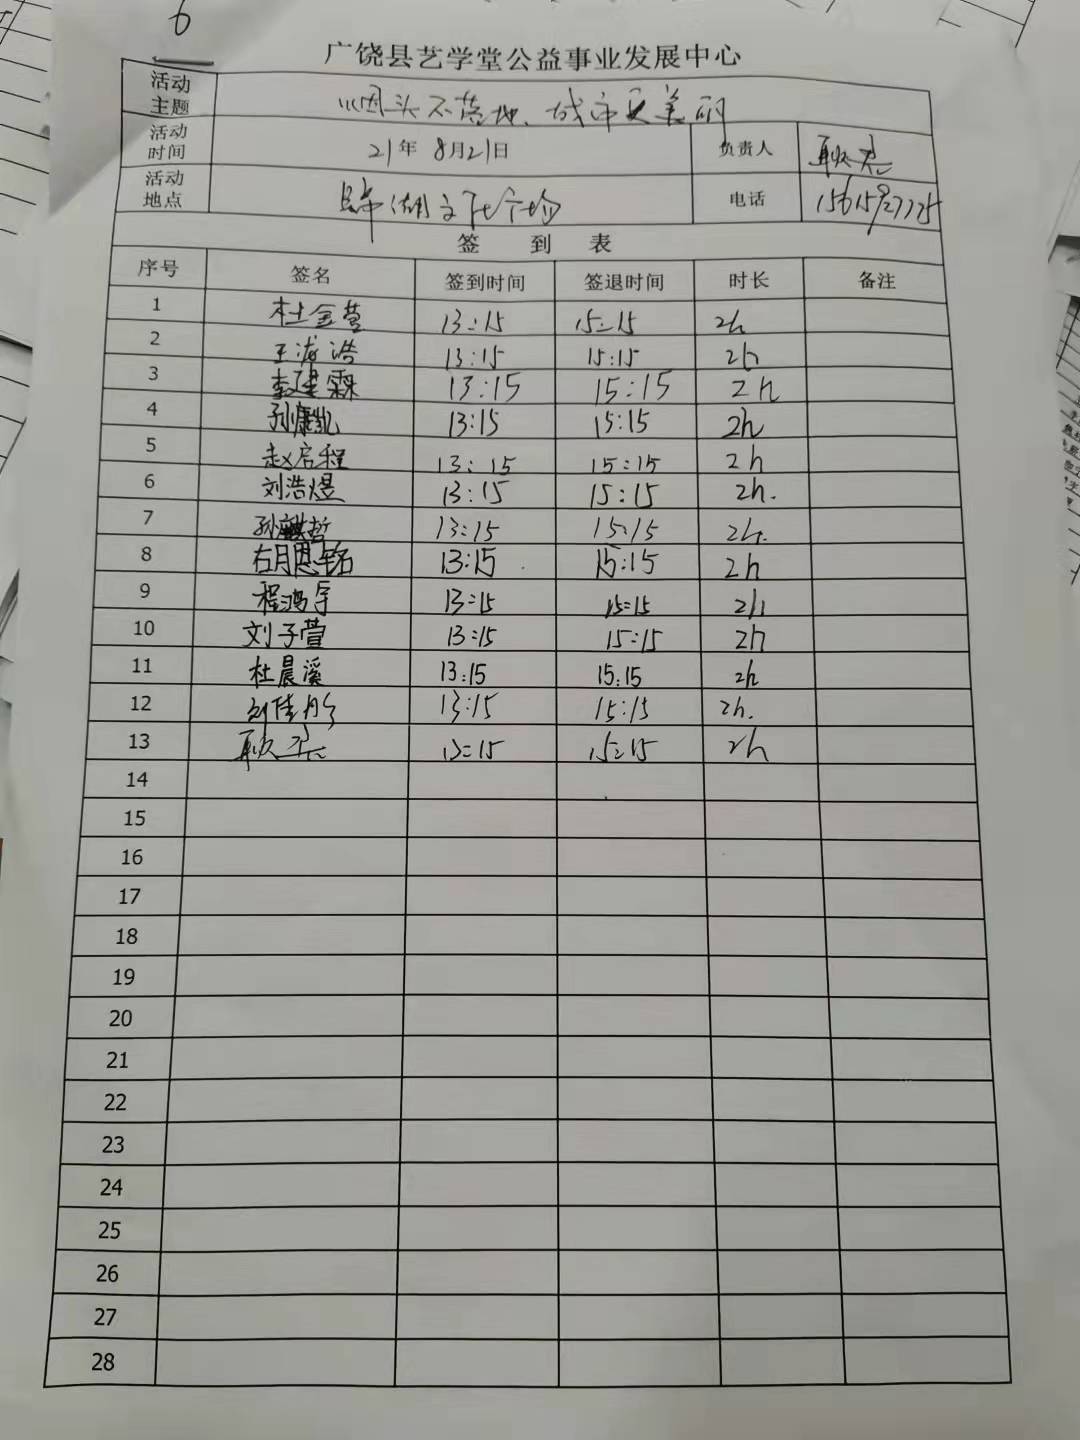 6
广饶县艺学堂公益事业发展中心
活动主题 烟头不落地、城市更美丽
活动时间 21年8月21日 负责人 耿
活动地点 湖文化广场 电话
签 到 表
序号 签名 签到时间 签退时间 时长 备注
1 杜金萱 13:15 15:15 2h
2 王浩 13:15 15:15 2h
3 李建霖 13:15 15:15 2h
4 孙康凯 13:15 15:15 2h
5 赵启程 13:15 15:15 2h
6 刘浩煜 13:15 15:15 2h.
7 孙麒哲 13:15 15:15 2h.
8 恩铭 13:15 15:15 2h
9 程鸿宇 13:15 15:15 2h
10 刘子萱 13:15 15:15 2h
11 杜晨溪 13:15 15:15 2h
12 刘佳彤 13:15 15:15 2h.
13 耿 13:15 15:15 2h
14
15
16
17
18
19
20
21
22
23
24
25
26
27
28